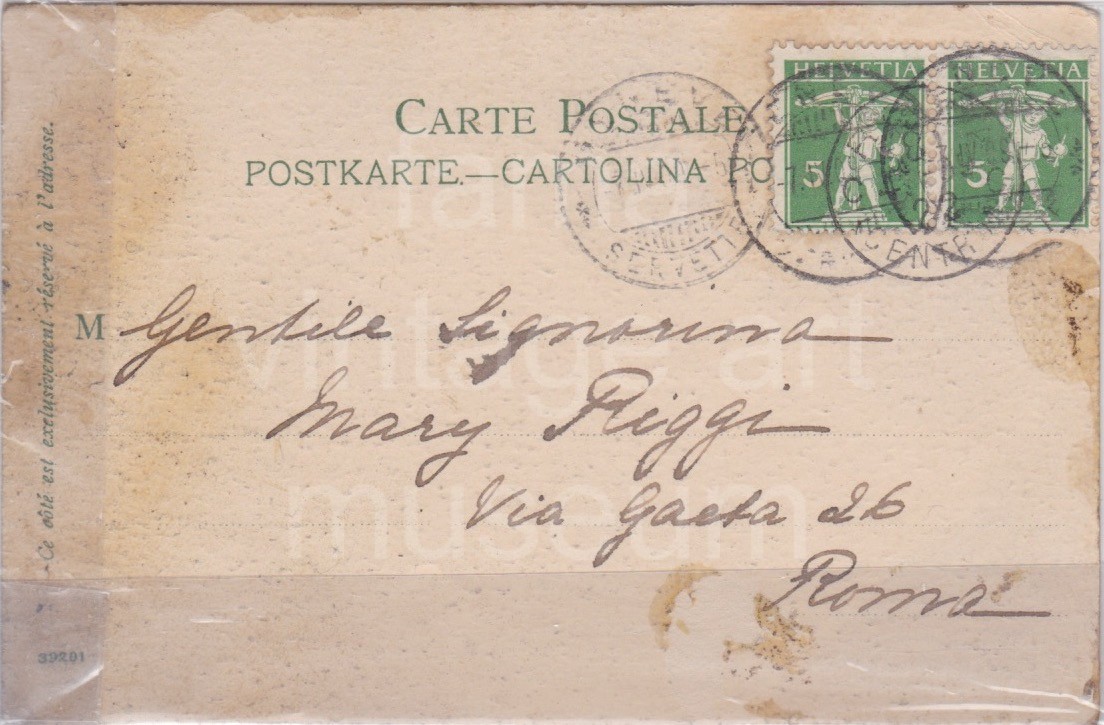 CARTE POSTALE
POSTKARTE.—CARTOLINA PO
HELVETIA
5
HELVETIA
5
M Gentile Signorina
Mary Riggi
Via Gaeta 26
Roma
Ce côté est exclusivement réservé à l'adresse.
39291
farfa
vintage art
museum